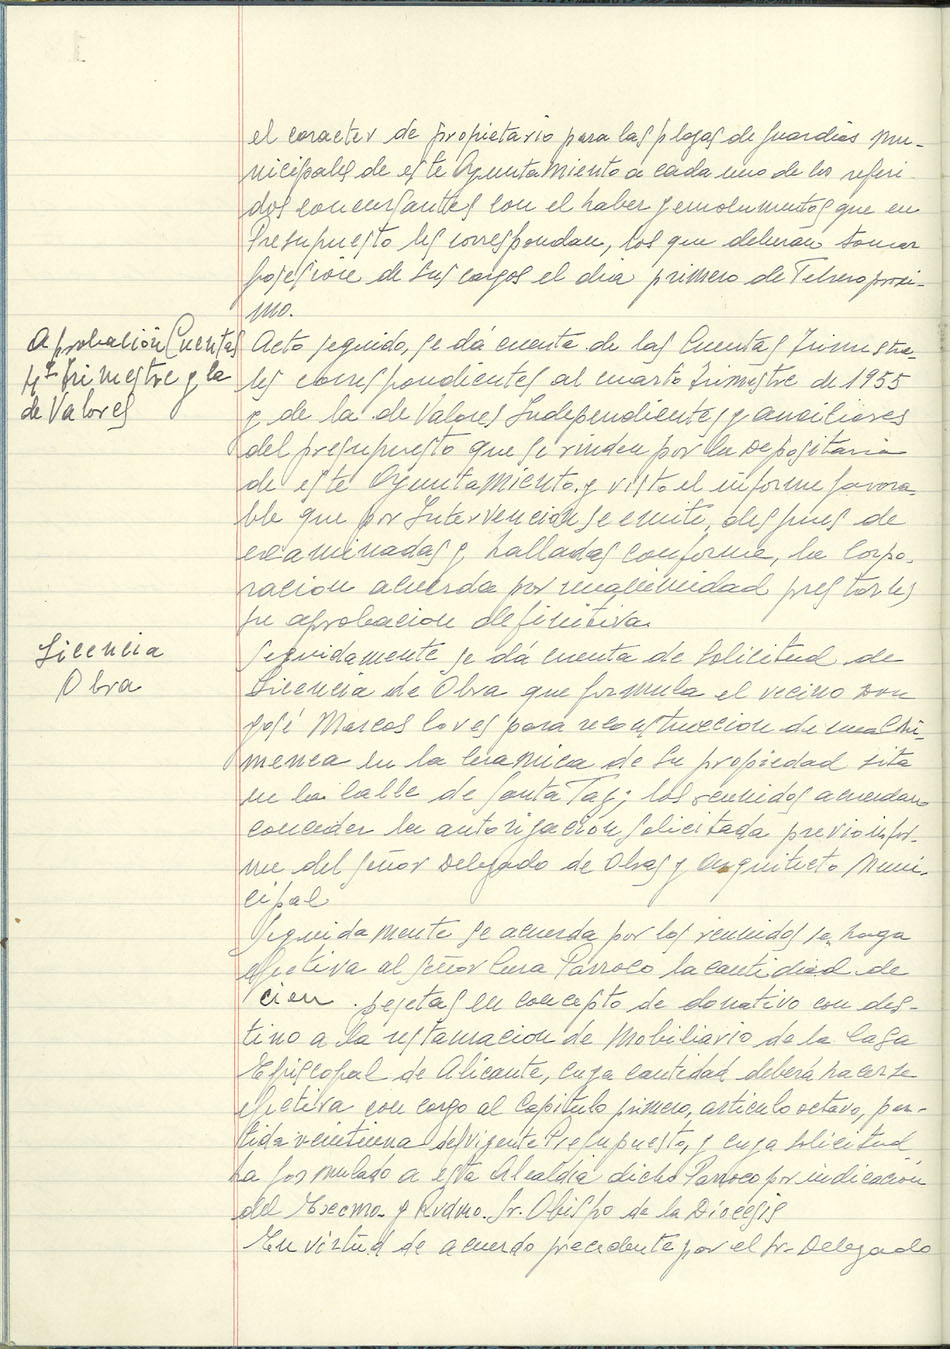 el caracter de propietario para las plazas de guardias mu-
nicipales de este Ayuntamiento a cada uno de los referi-
dos concursantes con el haber y emolumentos que en
Presupuesto les correspondan, los que deberan tomar
posesion de sus cargos el dia primero de Febrero proxi-
mo.
Aprobación Cuentas
4º Trimestre y la
de Valores
Acto seguido, se dá cuenta de las Cuentas Trimestra-
les correspondientes al cuarto trimestre de 1955
y de la de Valores Independientes y auxiliares
del presupuesto que se rinden por la Depositaria
de este Ayuntamiento, y visto el informe favora-
ble que por Intervencion se emite, despues de
examinadas y halladas conforme, la Corpo-
racion acuerda por unanimidad prestarles
su aprobacion definitiva.
Licencia
Obra
Seguidamente se dá cuenta de solicitud de
Licencia de Obra que formula el vecino Don
José Marcos Loves para reconstruccion de una Chi-
menea en la Ceramica de su propiedad sita
en la Calle de Santa Faz; los reunidos acuerdan
conceder la autorizacion solicitada previo infor-
me del señor Delegado de Obras y Arquitecto Muni-
cipal
Seguidamente se acuerda por los reunidos se haga
efectiva al señor Cura Parroco la cantidad de
cien pesetas en concepto de donativo con des-
tino a la restauracion de Mobiliario de la Casa
Episcopal de Alicante, cuya cantidad deberá hacerse
efectiva con cargo al Capitulo primero, articulo octavo, par-
tida veintiuna del vigente Presupuesto, y cuya solicitud
ha formulado a esta Alcaldia dicho Parroco por indicación
del Excmo. y Rvdmo. Sr. Obispo de la Diocesis
En virtud de acuerdo precedente por el Sr. Delegado